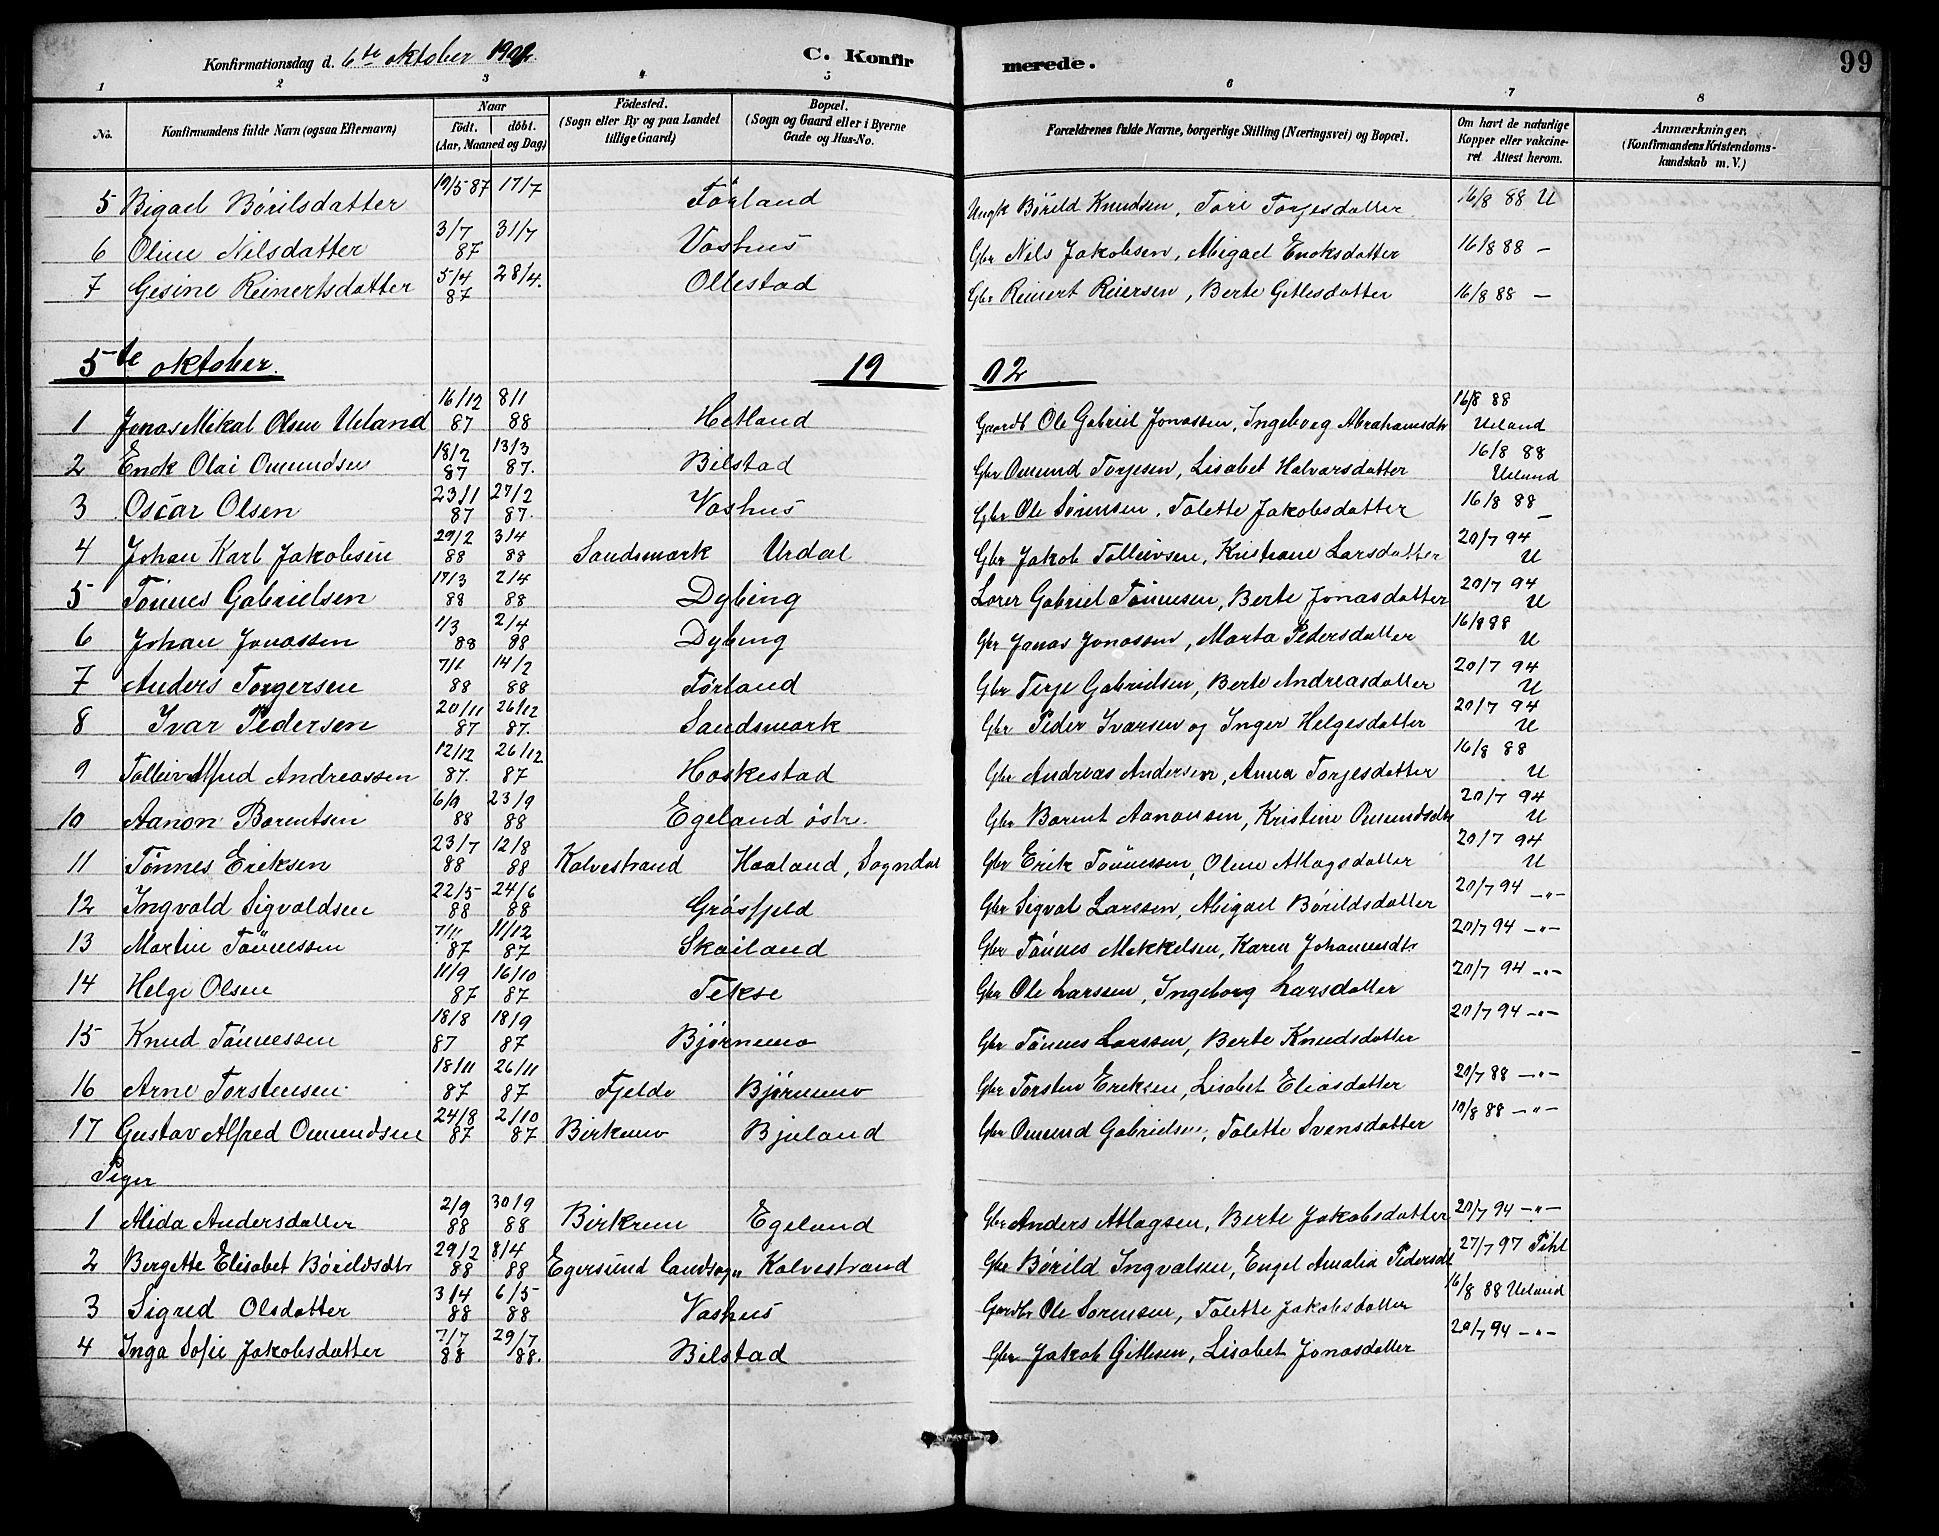 Konfirmationsdag d. 6te oktober 190
C. Konfir
merede.
99
1 2 3 4 5 6 7 8
No. Konfirmandens fulde Navn (ogsaa Efternavn) Naar födt. döbt. (Aar, Maaned og Dag) Födested. (Sogn eller By og paa Landet tillige Gaard) Bopæl. (Sogn og Gaard eller i Byerne Gade og Hus-No. Forældrenes fulde Navne, borgerlige Stilling (Næringsvei) og Bopæl. Om havt de naturlige Kopper eller vakcineret Attest herom. Anmærkninger. (Konfirmandens Kristendomskundskab m. V.)
5 Bigael Børilsdatter 19/5 87 17/7 Förland Ungk Børild Knudsen, Tori Torjesdatter 16/8 88 U
6 Oline Nilsdatter 3/7 87 31/7 Vashus Gbr Nils Jakobsen, Abigael Enoksdatter 16/8 88 —
7 Gesine Reinertsdatter 5/4 87 28/4. Ollestad Gbr Reinert Reiersen, Berte Gitlesdatter 16/8 88 —
5te oktober 19 02
1 Jonas Mikal Olsen Ueland 16/12 87 8/1 88 Hetland Gaardb Ole Gabriel Jonassen, Ingeborg Abrahamsdtr 16/8 88 Ueland
2 Enok Olai Omundsen 18/2 87 13/3 87. Bilstad Gbr Omund Torjesen, Lisabet Halvarsdatter 16/8 88 Ueland
3 Oscar Olsen 23/1 87 27/2 87. Vashus Gbr Ole Sörensen, Tolette Jakobsdatter 16/8 88 —
4 Johan Karl Jakobsen 29/2 88 3/4 88 Sandsmark Urdal Gbr Jakob Tolleivsen, Kristiane Larsdatter 20/7 94 U
5 Tönnes Gabrielsen 17/3 88 2/4 88 Dybing Lærer Gabriel Tönnesen, Berte Jonasdatter 20/7 94 U
6 Johan Jonassen 1/3 88 2/4 88 Dybing Gbr Jonas Jonassen, Marta Pedersdatter 16/8 88 U
7 Anders Torgersen 7/1 88 14/2 88 Førland Gbr Terje Gabrielsen, Berte Andreasdatter 20/7 94 U
8 Ivar Pedersen 20/11 87 26/12 87. Sandsmark Gbr Peder Ivarsen og Inger Helgesdatter 20/7 94 U
9 Tolleiv Alfred Andreassen 12/12 87. 26/12 87 Haskestad Gbr Andreas Andersen, Anna Torjesdatter 16/8 88 U
10 Aanon Barentsen 6/9 88 23/9 88 Egeland östre. Gbr Barent Aanonsen, Kristine Omundsdtr 20/7 94 U
11 Tønnes Eriksen 23/7 88 12/8 88 Kalvestrand Haaland, Sogndal Gbr Erik Tönnessen, Oline Atlagsdatter 20/7 94 U
12 Ingvald Sigvaldsen 22/5 88 24/6 88 Gråsfjeld Gbr Sigval Larssen, Abigael Børildsdatter 20/7 94 —„—
13 Martin Tönnessen 7/11 87 11/12 87 Skailand Gbr Tönnes Mikkelsen, Karen Johannesdtr 20/7 94 —„—
14 Helge Olsen 11/9 87 16/10 87 Tekse Gbr Ole Larssen, Ingeborg Larsdatter 20/7 94 —„—
15 Knud Tönnessen 18/8 87 18/9 87 Bjørnemo Gbr Tönnes Larssen, Berte Knudsdatter 20/7 94 —„—
16 Arne Torstensen 18/11 87 26/11 87 Fjelde Bjørnemo Gbr Torsten Eriksen, Lisabet Eliasdatter 20/7 88 —„—
17 Gustav Alfred Omundsen 24/8 87 2/10 87 Birkemo Bjuland Gbr Omund Gabrielsen, Tolette Svensdatter 10/8 88 —„—
Piger
1 Alida Andersdatter 2/9 88 30/9 88 Birkrem Egeland Gbr Anders Atlagsen, Berte Jakobsdatter 20/7 94 —„—
2 Bergette Elisabet Børildsdtr 29/2 88 8/4 88 Egersund landsogn Kalvestrand Gbr Børild Ingvalsen, Engel Amalia Pedersdt 27/7 97 Pihl
3 Sigred Olsdatter 3/4 88 6/5 88 Vashus Gardbr Ole Sørensen, Tolette Jakobsdatter 16/8 88 Ueland
4 Inga Sofie Jakobsdatter 7/7 88 29/7 88. Bilstad Gbr Jakob Gitlesen, Lisabet Jonasdatter 20/7 94 —„—